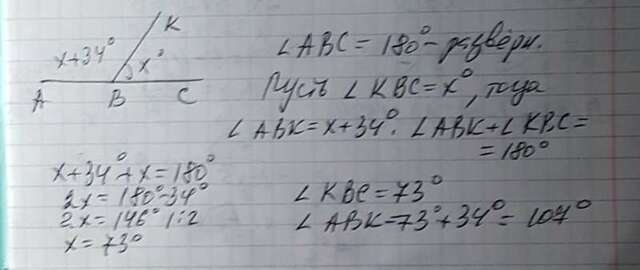 K
x+34° x°
A B C
∠ABC = 180° - развёрн.
Пусть ∠KBC = x°, тогда
∠ABK = x+34°. ∠ABK + ∠KBC =
= 180°
x+34°+x=180°
2x = 180°-34°
2x = 146° |:2
x = 73°
∠KBC = 73°
∠ABK = 73° + 34° = 107°